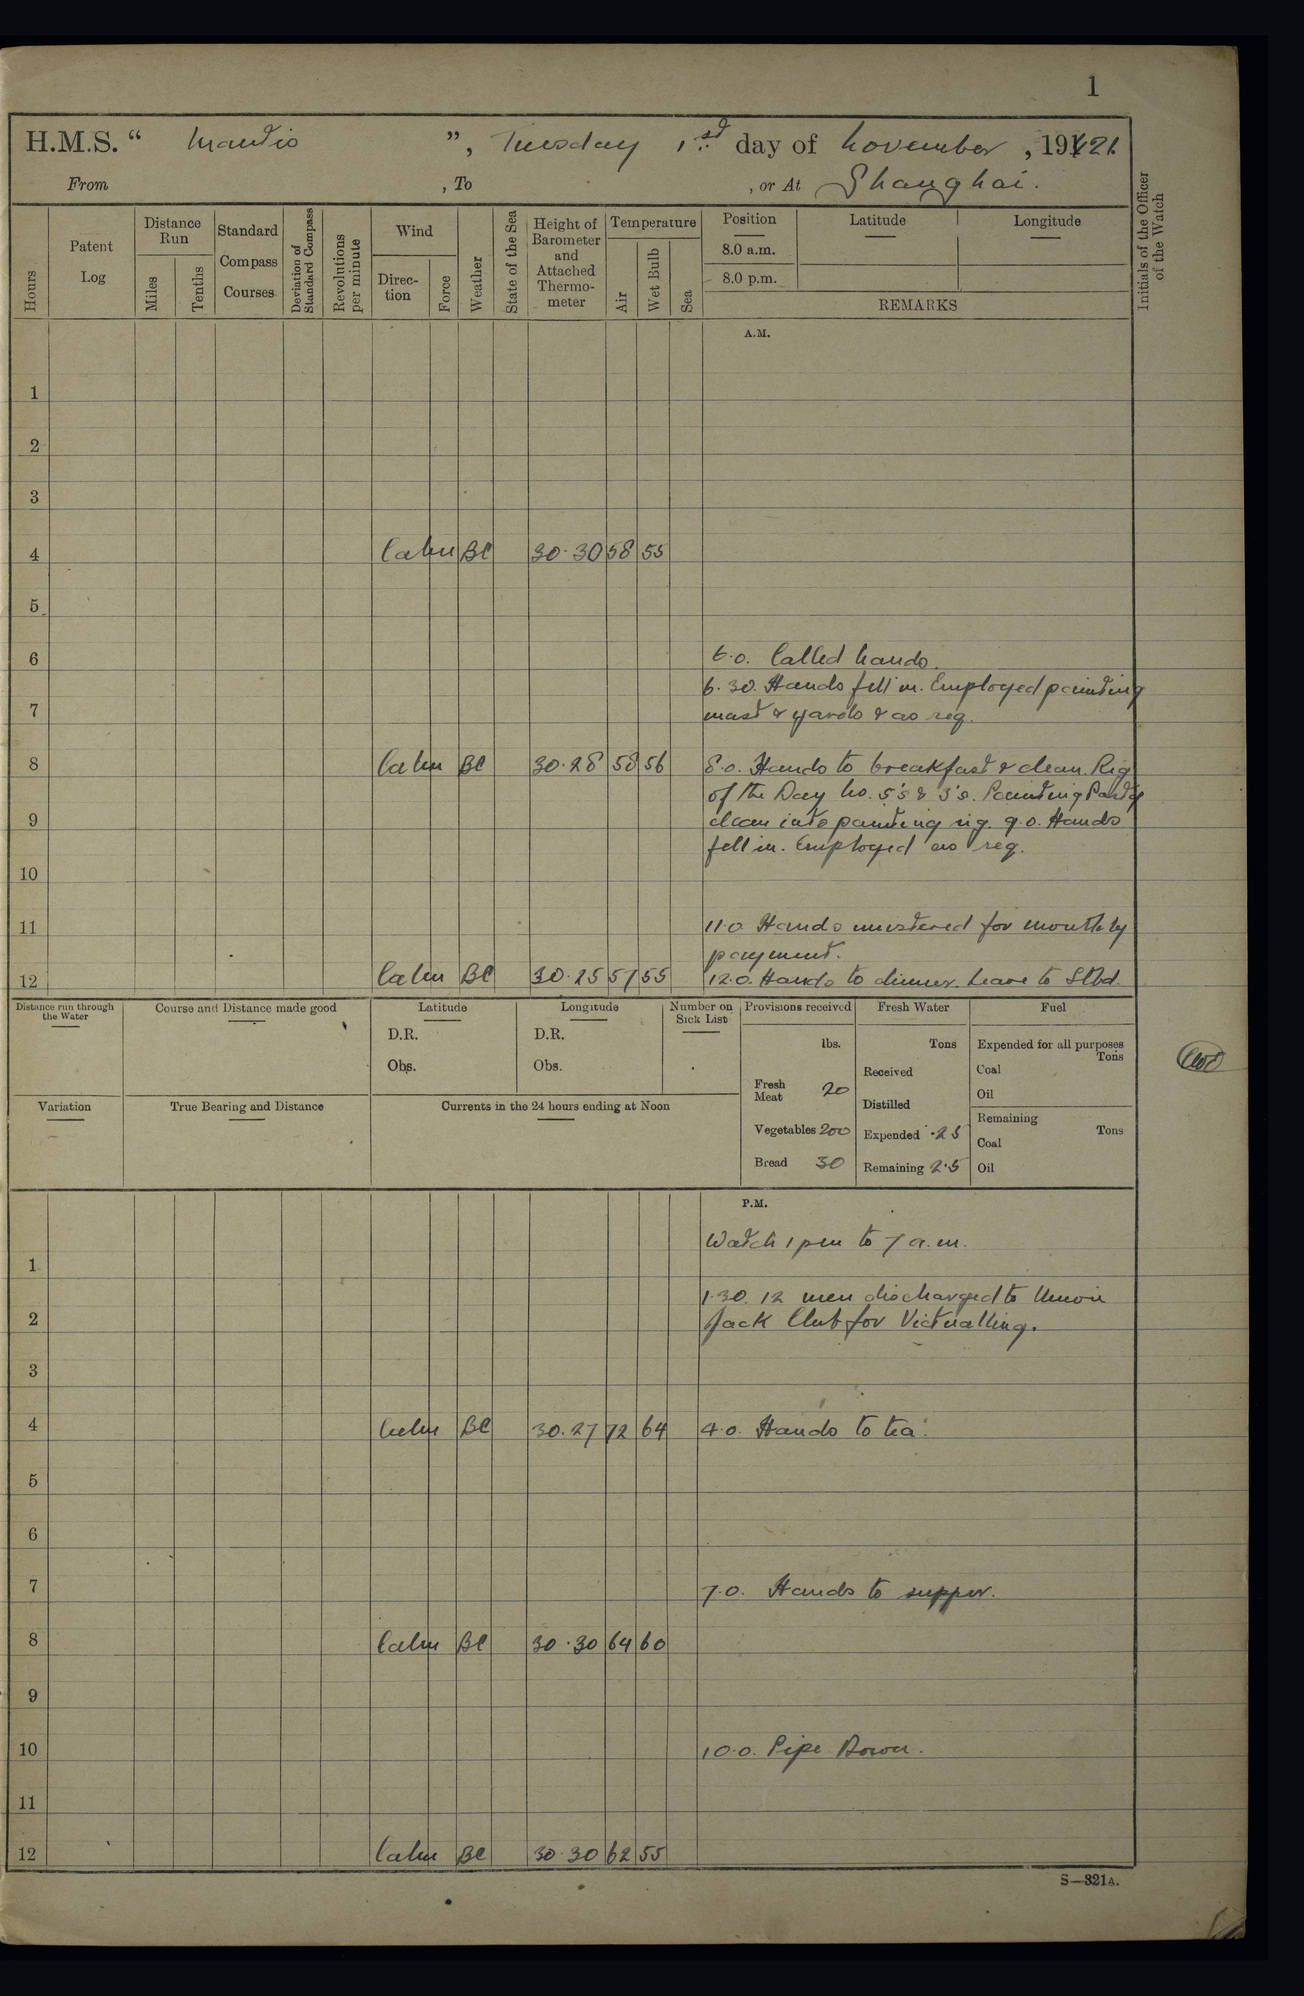 1
H.M.S. “ Mantis ”, Tuesday 1st day of November, 1921.
From , To , or At Shanghai.
Hours
Patent Log
Distance Run
Miles
Tenths
Standard Compass Courses
Deviation of Standard Compass
Revolutions per minute
Wind
Direction
Force
Weather
State of the Sea
Height of Barometer and Attached Thermometer
Temperature
Air
Wet Bulb
Sea
Position
8.0 a.m.
8.0 p.m.
Latitude
Longitude
REMARKS
Initials of the Officer of the Watch
A.M.
1
2
3
4 Calm BC 30.30 58 55
5
6 6.0. Called hands.
6.30. Hands fell in. Employed painting
7 mast & yards & as req.
8 Calm BC 30.28 58 56 8.0. Hands to breakfast & clean. Rig
of the Day No. 5's & 3's. Painting Party
9 clean into painting rig. 9.0. Hands
fell in. Employed as req.
10
11 11.0 Hands mustered for monthly
payment.
12 Calm BC 30.25 57 55 12.0. Hands to dinner. Leave to Stbd.
Distance run through the Water
Course and Distance made good
Latitude
D.R.
Obs.
Longitude
D.R.
Obs.
Number on Sick List
Provisions received
lbs.
Fresh Meat 20
Vegetables 200
Bread 30
Fresh Water
Tons
Received
Distilled
Expended .25
Remaining 2.5
Fuel
Expended for all purposes
Tons
Coal
Oil
Remaining
Tons
Coal
Oil
Variation
True Bearing and Distance
Currents in the 24 hours ending at Noon
P.M.
Watch 1 pm to 7 a.m.
1
1.30. 12 men discharged to Union
2 Jack Club for Victualling.
3
4 Calm BC 30.27 72 64 4.0. Hands to tea.
5
6
7 7.0. Hands to supper.
8 Calm BC 30.30 64 60
9
10 10.0. Pipe Down.
11
12 Calm BC 30.30 62 55
S—321A.